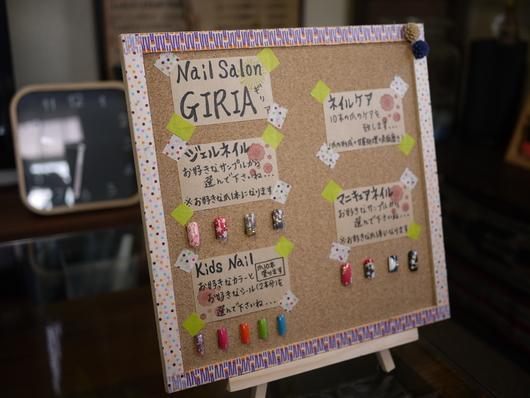 Nail Salon
GIRIA
ギリア
ジェルネイル
お好きなサンプルから
選んで下さいね...
※お好きな爪1本になります
Kids Nail
爪10本
塗ります
お好きなカラーと
お好きなシール(2本分)を
選んで下さいね...
ネイルケア
10本の爪のケアを
致します...
マニキュアネイル
お好きなサンプルから
選んで下さいね...
※お好きな爪1本になります
12